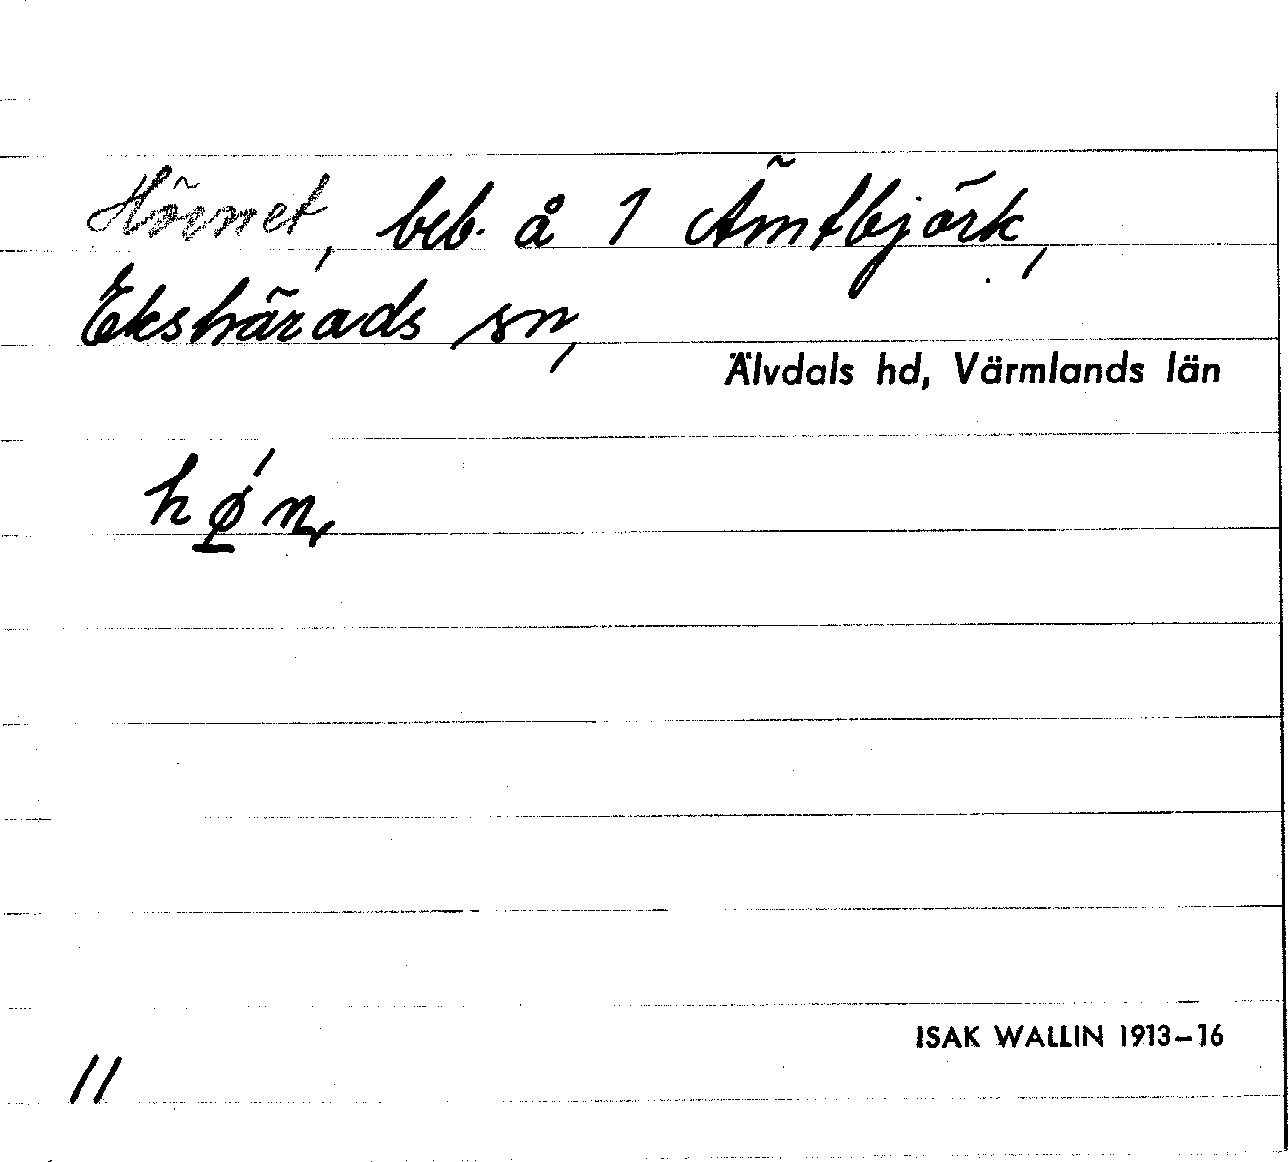 Hörnet, beb. å 1 Ämtbjörk,
Ekshärads sn,
Älvdals hd, Värmlands län
hǿ̱n,
ISAK WALLIN 1913–16
11